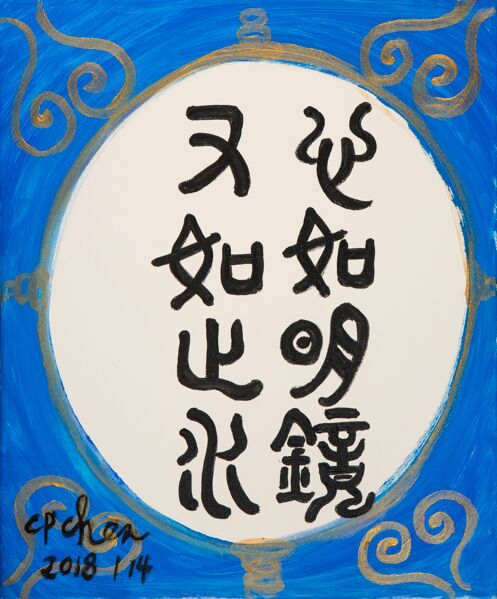 心如明鏡
又如止水
CP chen
2018 1/14